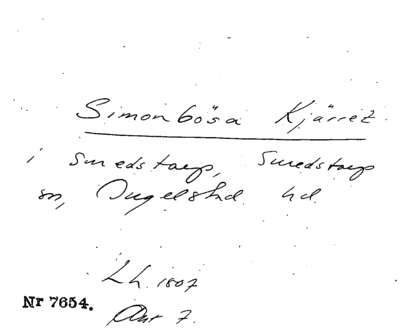 Simonbösa Kjärret
i Smedstorp, Smedstorp
sn, Ingelstad hd.
Lh. 1807
Nr 7654.
Akt 7.